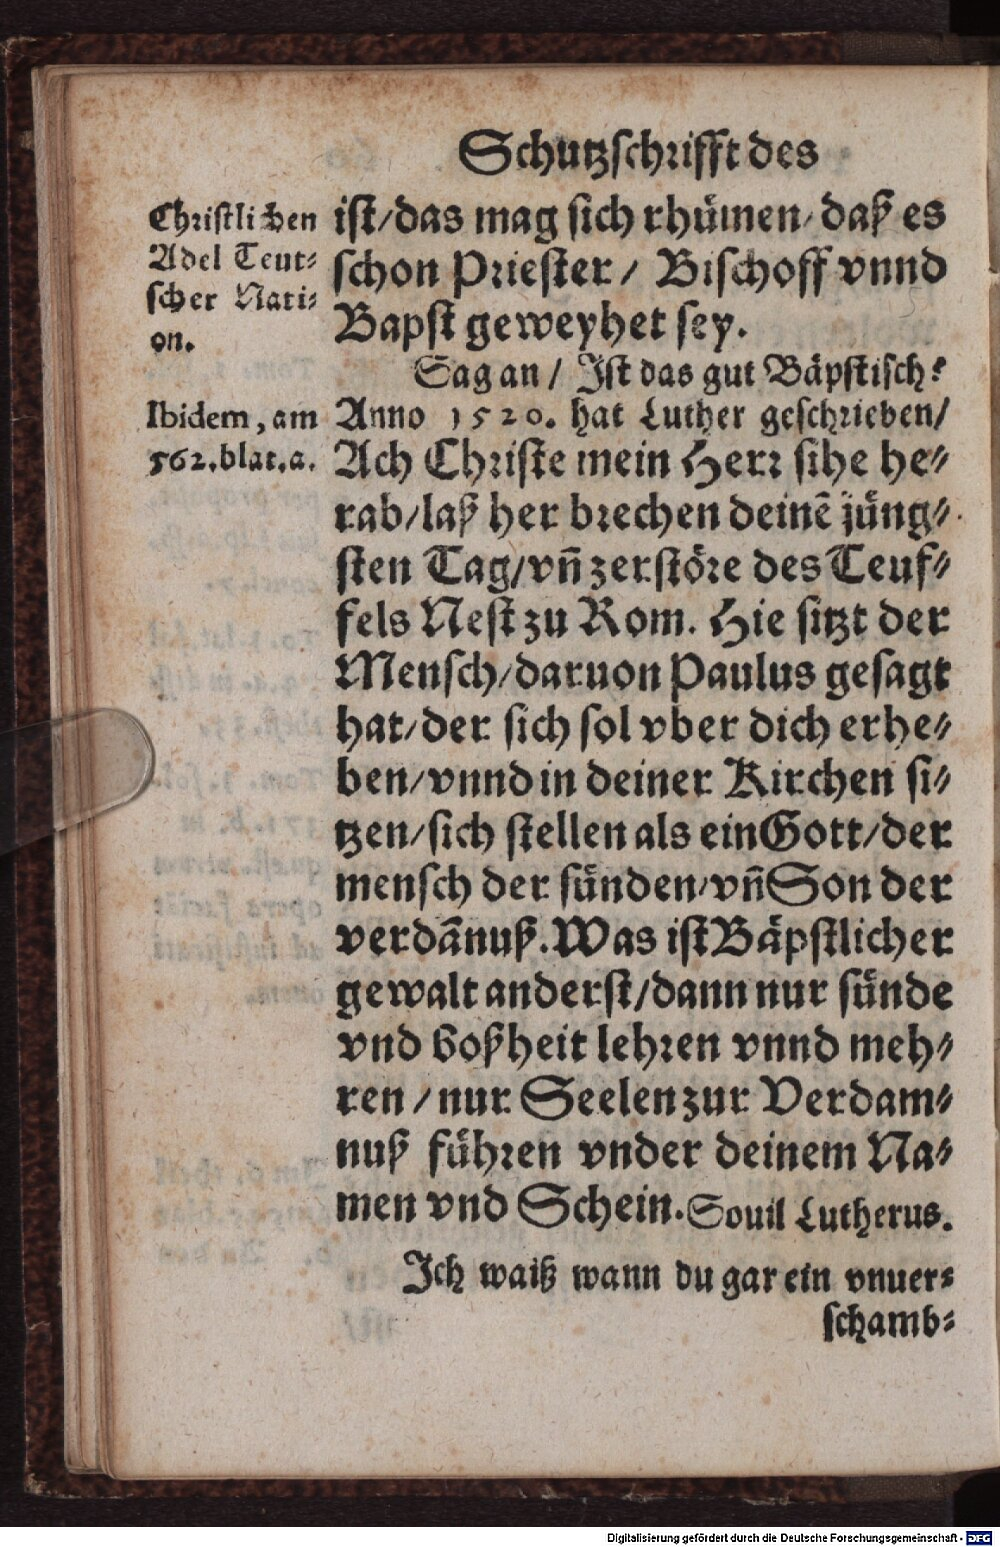 Schutzschrifft des
Christlichen
Adel Teut-
scher Nati-
on.
ist/das mag sich rhümen/daß es
schon Priester/ Bischoff vnnd
Bapst geweyhet sey.
Sag an / Ist das gut Bäpstisch?
Ibidem, am
562.blat.a.
Anno 1520. hat Luther geschrieben/
Ach Christe mein Herr sihe he-
rab/laß her brechen deinē jüng-
sten Tag/vñ zerstöre des Teuf-
fels Nest zu Rom. Hie sitzt der
Mensch/daruon Paulus gesagt
hat/der sich sol vber dich erhe-
ben/vnnd in deiner Kirchen si-
tzen/sich stellen als ein Gott/der
mensch der sünden/vñ Son der
verdānuß.Was ist Bäpstlicher
gewalt anderst/dann nur sünde
vnd boßheit lehren vnnd meh-
ren/nur Seelen zur Verdam-
nuß führen vnder deinem Na-
men vnd Schein. Souil Lutherus.
Ich waiß wann du gar ein vnuer-
schamb-
Digitalisierung gefördert durch die Deutsche Forschungsgemeinschaft - DFG